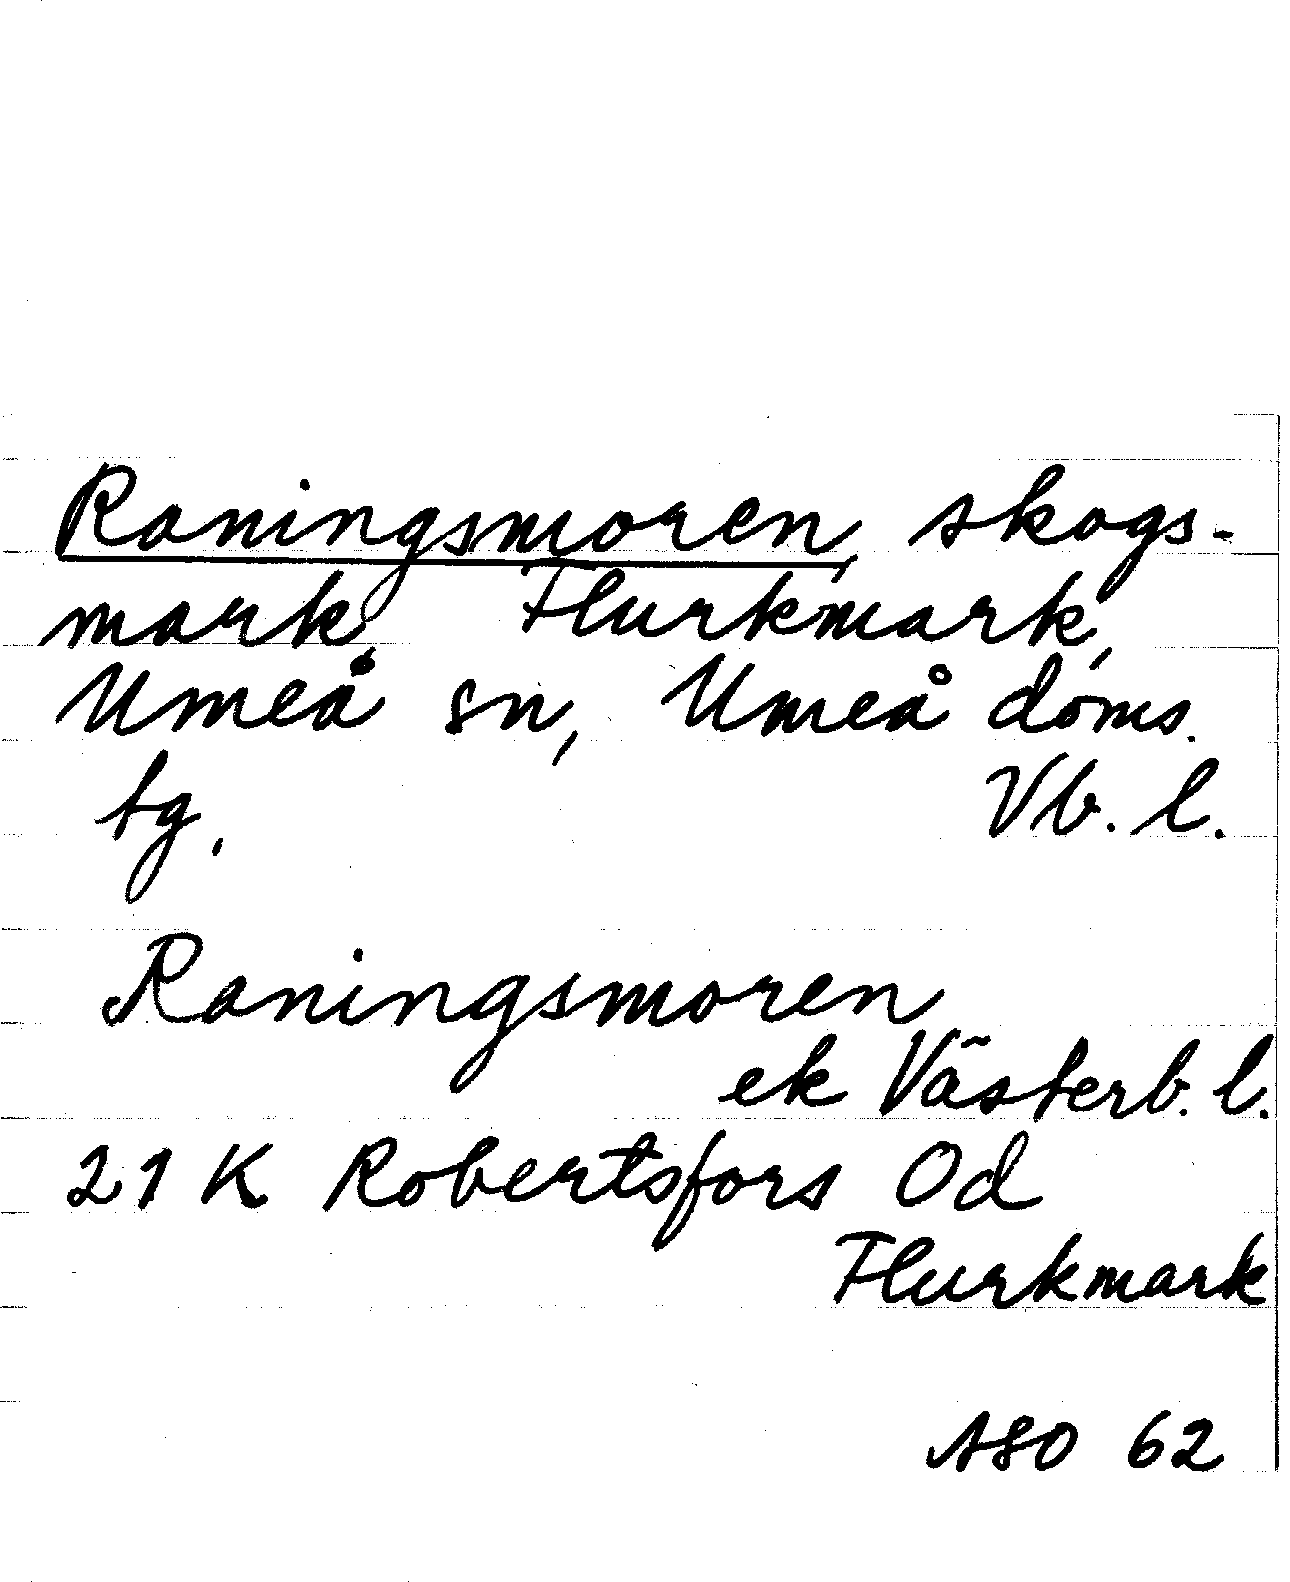 Raningsmoren, skogs-
mark, Flurkmark,
Umeå sn, Umeå doms.
tg. Vb. l.
Raningsmoren
ek Västerb. l.
21 K Robertsfors Od
Flurkmark
ASO 62